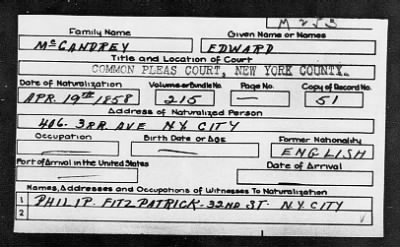 M 253
Family Name Given Name or Names
McGANDREY EDWARD
Title and Location of Court
COMMON PLEAS COURT, NEW YORK COUNTY.
Date of Naturalization Volume or Bundle No. Page No. Copy of Record No.
APR. 19th 1858 215 — 51
Address of Naturalized Person
406. 3RD AVE N.Y. CITY
Occupation Birth Date or Age Former Nationality
ENGLISH
Port of Arrival in the United States Date of Arrival
Names, Addresses and Occupations of Witnesses To Naturalization
1 PHILIP. FITZPATRICK - 32ND ST. N.Y. CITY
2